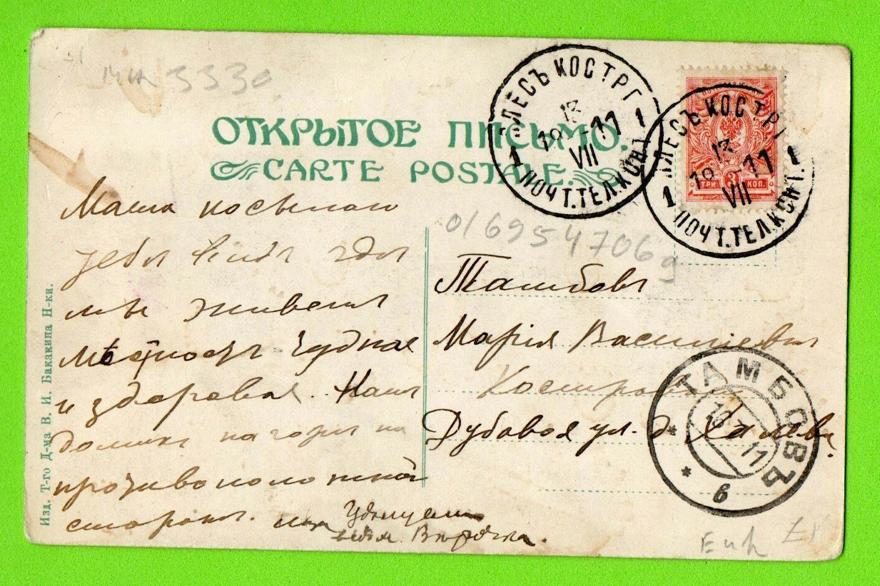 3330
ОТКРЫТОЕ ПИСЬМО.
CARTE POSTALE.
ПЛЕСЪ КОСТР Г
1 13 1
18 VII 11
ПОЧТ.ТЕЛ.КОН
ПЛЕСЪ КОСТР Г
1 13 1
18 VII 11
ПОЧТ.ТЕЛ.КОНТ.
ТРИ 3 КОП.
0169547069
Маша посылаю
тебе видъ гдѣ
мы живемъ
мѣстность чудная
и здоровая. Нашъ
домикъ на горѣ на
противоположной
сторонѣ.
Цѣлую
Вѣрочка.
Тамбовъ
Марія Васильевна
Дубовая ул. д.
ТАМБОВЪ
11
* 6 *
Изд. Т-го Д-ма В. И. Бакакина Н-ки.